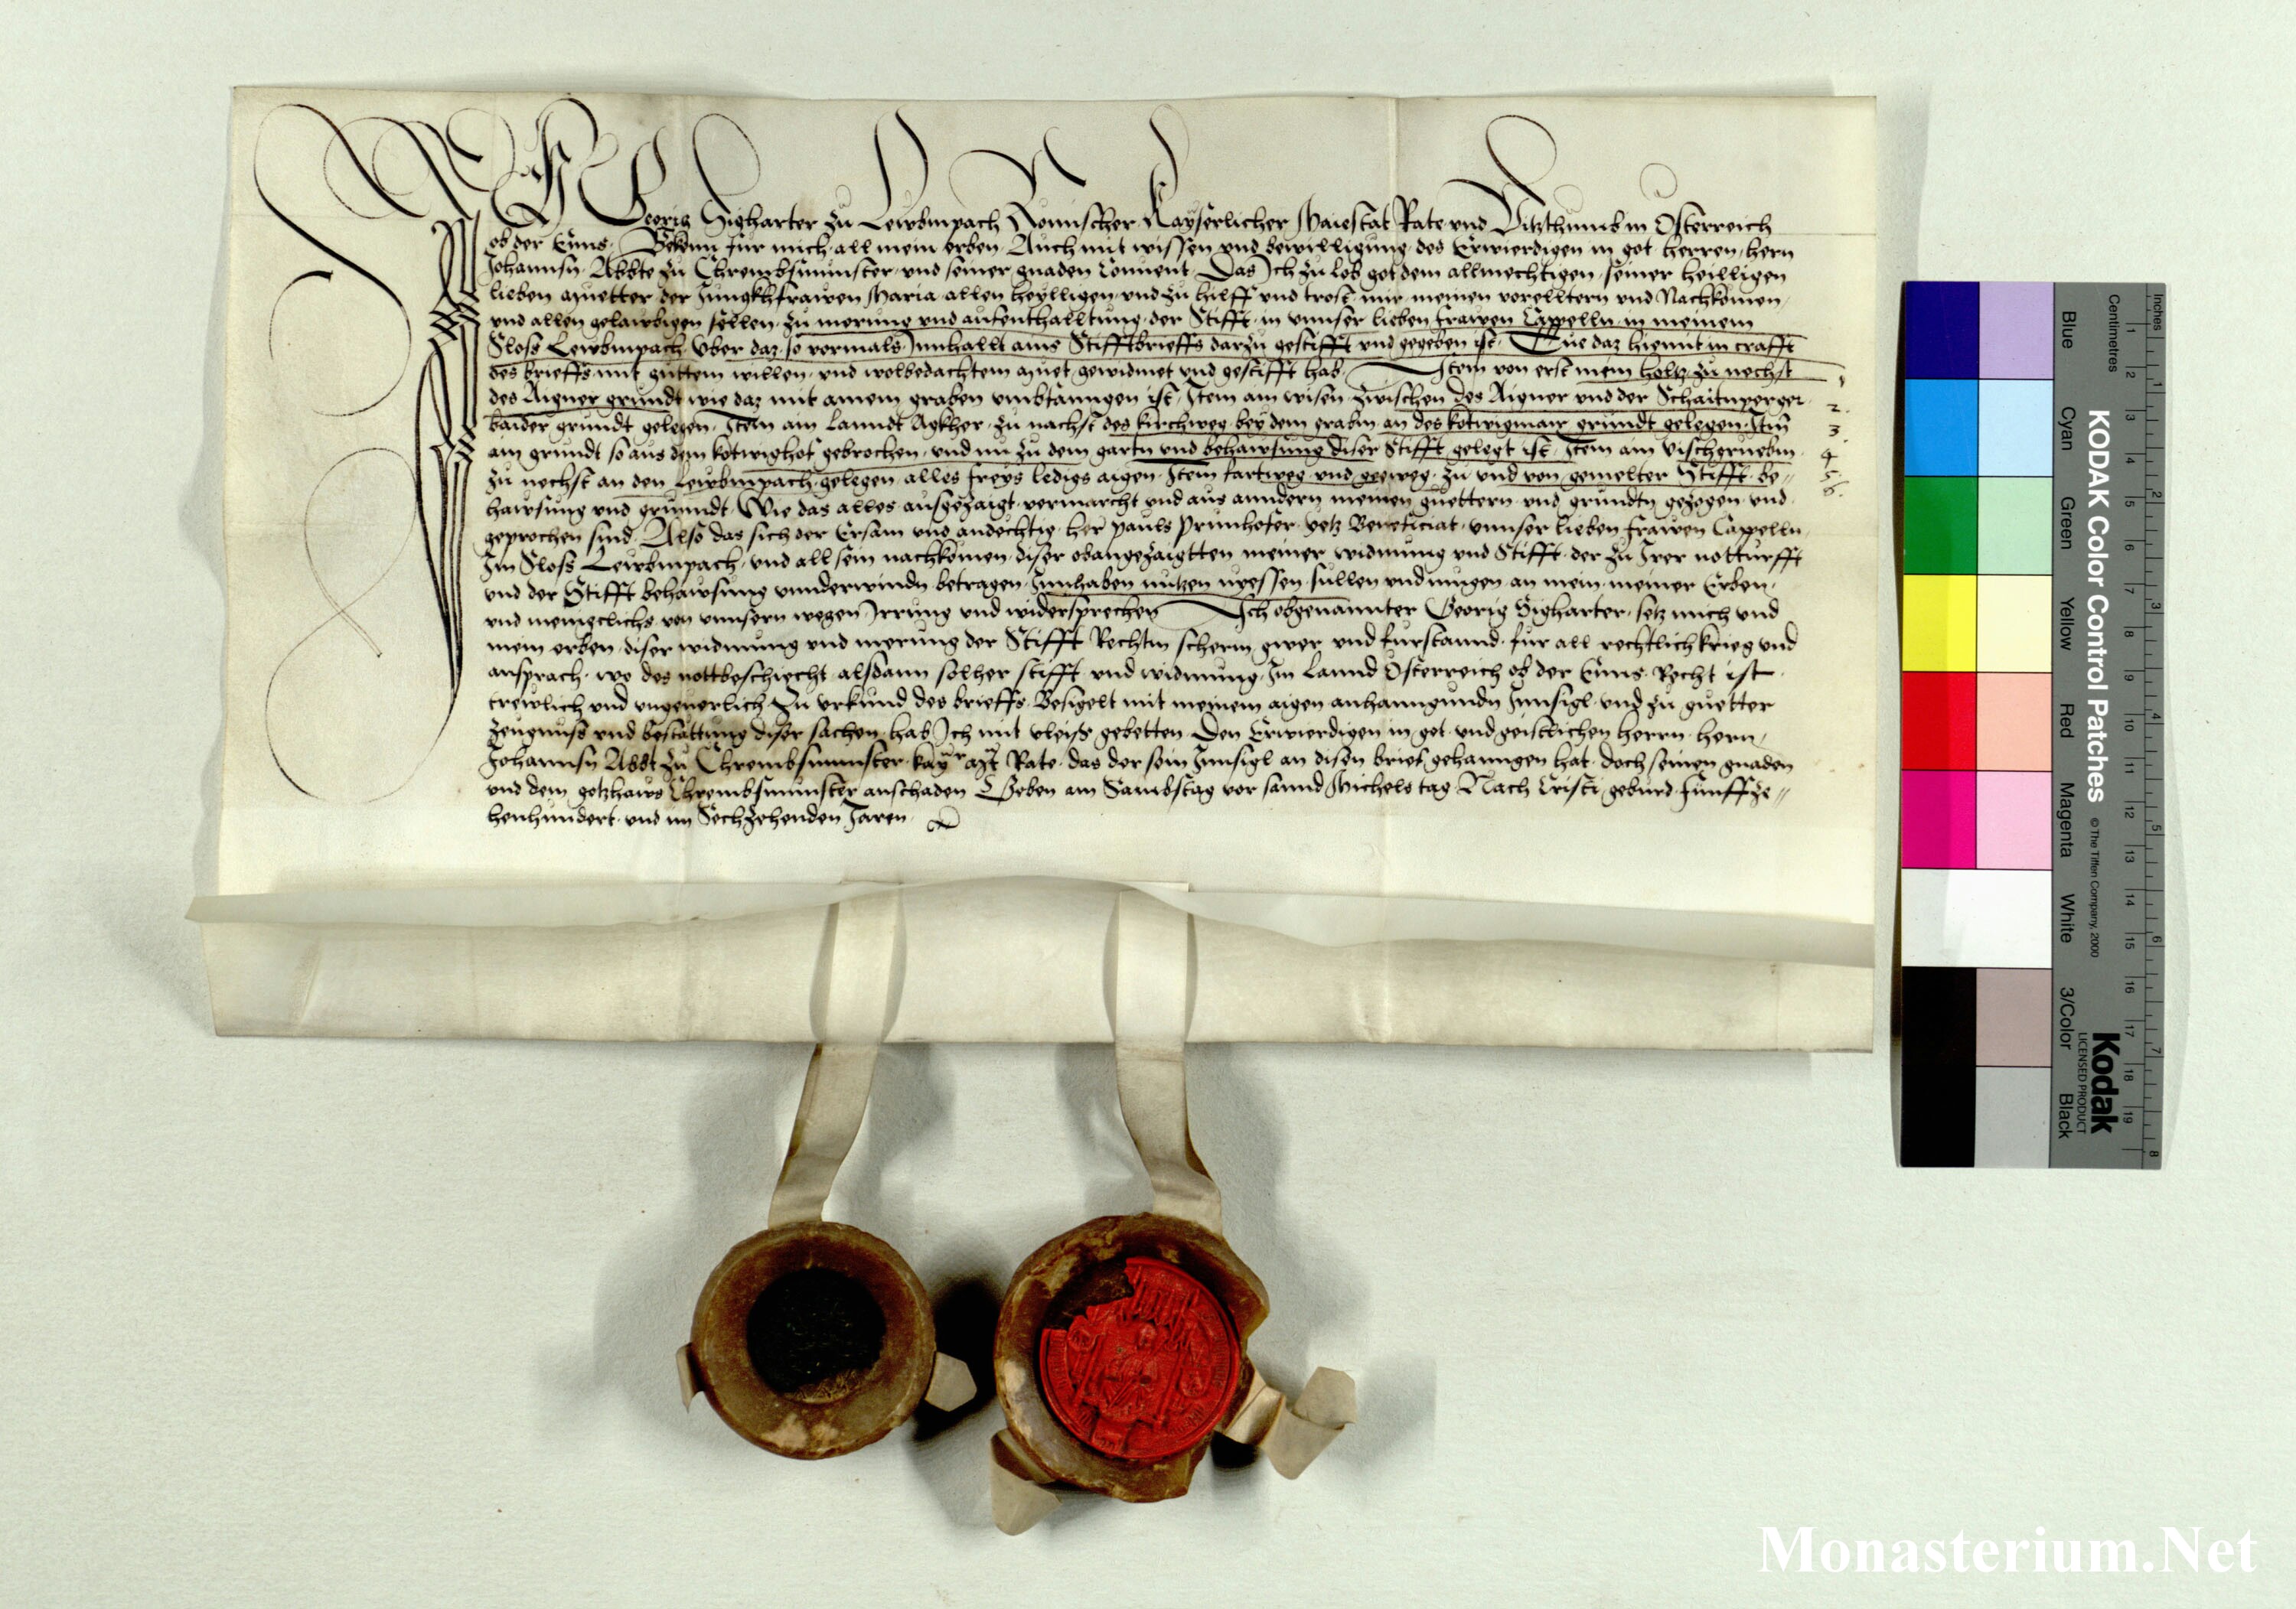 ICH Georig Sigharter zu Lewbmpach Romischer Kayserlicher Maiestat Rate vnd Vitzthumb in Osterreich
ob der Enns. Bekenn fur mich all mein erben. Auch mit wissen vnd bewilligung des Erwierdigen in got herren hern
Johannsn Abbte zu Chrembsmunster vnd seiner gnaden Conuent. Das Ich zu lob got dem allmechtigen seiner heilligen
lieben muetter der Jungkhfrawen Maria allen heylligen vnd zu hilff vnd trost mir meinen vorelltern vnd Nachkomen
vnd allen gelawbigen sellen zu merung vnd aufenthalltung der Stifft in vnnser lieben frawen Cappelln in meinem
Sloss Lewbmpach Vber daz so vormals Innhallt ains Stifftbrieffs darzu gestifft vnd gegeben ist. Tue daz hiemit in crafft
des brieffs mit guttem willen vnd wolbedachtem muet gewidmet vnd gestifft hab. Item von erst mein holtz zu nechst
des Aigner grundt wie daz mit ainem graben vmbfanngen ist, Item ain wisen zwischen des Aigner vnd der Schaitnperger
baider grundt gelegen. Item ain lanndt Agkher zu nachst des kirchweg bey dem grabm an des kotwigmair grundt gelegen Itm
ain grundt so aus dem kotwighof gebrochen vnd nu zu dem gartn vnd behawsung diser Stifft gelegt ist. Item ain Vischernebm
zu nechst an den Lewbmpach gelegen alles freys ledigs aigen Item fartweg vnd geeweg zu vnd von gemelter Stifft be-
hawsung vnd grunndt, Wie das alles ausgezaigt vermarcht vnd aus anndern meinen guettern vnd grundtn gezogen vnd
geprochen sind. Also das sich der Ersam vnd andechtig her Pauls Prunhofer yetz Beneficiat vnnser lieben frawen Cappelln
Im Sloss Lewbmpach vnd all sein nachkomen diser obangezaigtten meiner widmung vnd Stifft der zu Irer notturfft
vnd der Stifft behawsung vnnderwindn betragen Innhaben nutzen nyessen sullen vnd mugen an mein meiner Erben
vnd menigclichs von vnnsern wegen Irrung vnd widersprechen Ich obgenannter Georig Sigharter setz mich vnd
mein erben diser widmung vnd merung der Stifft Rechtn scherm gwer vnd furstannd fur all rechtlich krieg vnd
ansprach wo des nottbeschiecht alsdann solher stifft vnd widmung Im Lannd Osterreich ob der Enns Recht ist
trewlich vnd vngeuerlich Zu vrkund des brieffs Besigelt mit meinem aigen anhanngundn Innsigl vnd zu guetter
zeugnuss vnd bestattung diser sachen hab Ich mit vleiss gebetten Den Erwierdigen in got vnd geistlichen herrn hern
Johannsn Abbt zu Chrembsmunster kayr mt Rate das der sein Innsigl an disen brief gehanngen hat doch seinen gnaden
vnd dem gotzhaws Chrembsmunster anschaden Geben am Sambstag vor sannd Michels tag Nach Cristi geburd funffze-
henhundert vnd im Sechzehenden Jaren
1
2.
3
4
5
6.
KODAK Color Control Patches
© The Tiffen Company, 2000
Kodak
LICENSED PRODUCT
Blue Cyan Green Yellow Red Magenta White 3/Color Black
Inches 1 2 3 4 5 6 7 8
Centimetres 1 2 3 4 5 6 7 8 9 10 11 12 13 14 15 16 17 18 19
Monasterium.Net